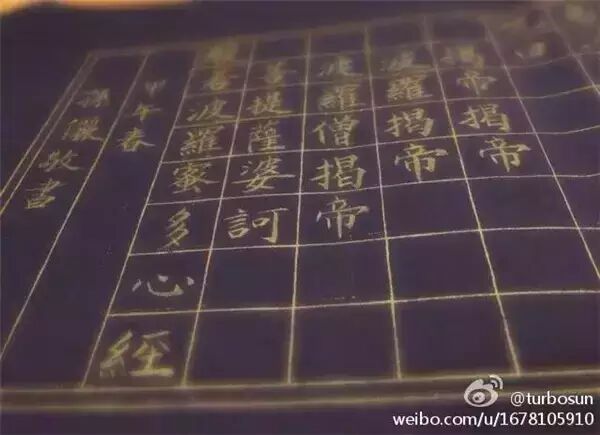 揭帝揭帝
波羅揭帝
波羅僧揭帝
菩提薩婆訶
般若波羅蜜多心經
甲午春
孫儷敬書
@turbosun
weibo.com/u/1678105910